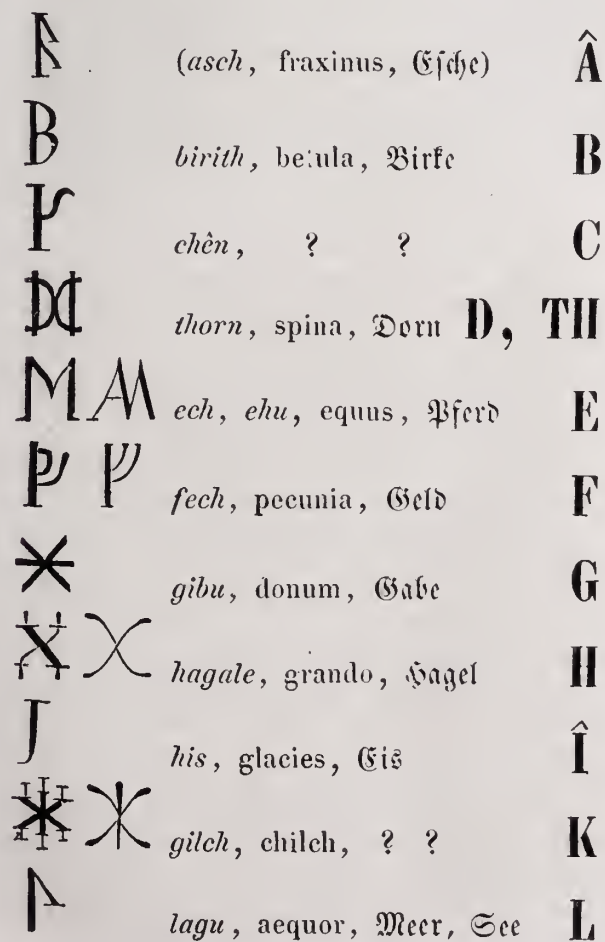 (asch, fraxinus, Eſche) Â
birith, betula, Birke B
chên, ? ? C
thorn, spina, Dorn D, TH
ech, ehu, equus, Pferd E
fech, pecunia, Geld F
gibu, donum, Gabe G
hagale, grando, Hagel H
his, glacies, Eis Î
gilch, chilch, ? ? K
lagu, aequor, Meer, See L